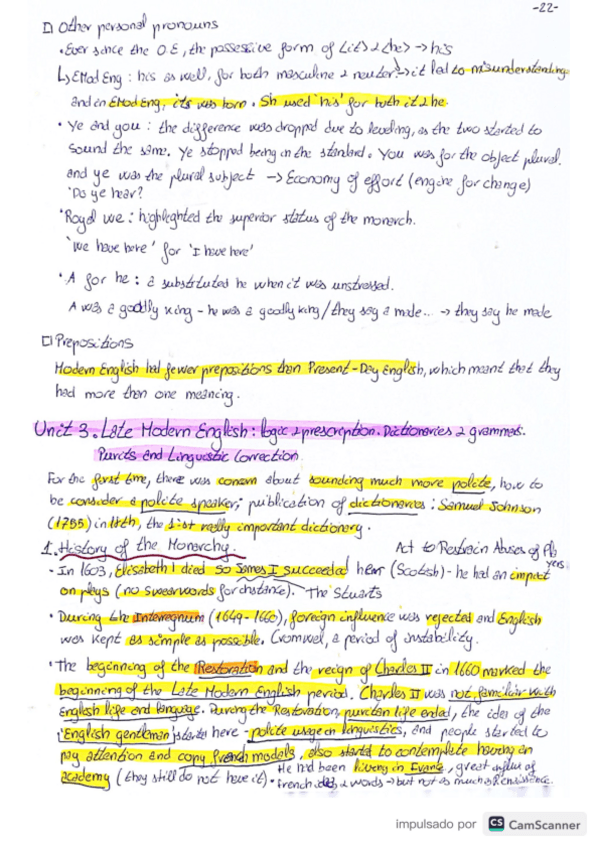 -22-
□ Other personal pronouns
• Ever since the O.E, the possessive form of <it> 2 <he> → his
↳ EMod Eng : his as well, for both masculine 2 neuter → it led to misunderstanding
and in EMod Eng, its was born. Sh used 'his' for both it 2 he.
• Ye and you : the difference was dropped due to leveling, as the two started to
sound the same. Ye stopped being in the standard. You was for the object plural.
and ye was the plural subject → Economy of effort (engine for change)
'Do ye hear?
• Royal we : highleghted the superior status of the monarch.
'we have here' for 'I have here'
• A for he : a substituted he when it was unstressed.
A was a goodly king - he was a goodly king / they say a made... → they say he made
□ Prepositions
Modern English had fewer prepositions than Present-Day English, which meant that they
had more than one meaning.
Unit 3. Late Modern English : logic 2 prescription. Dictionaries 2 grammars.
Purists and Linguistic Correction
For the first time, there was concern about sounding much more polite, how to
be consider a polite speaker; publication of dictionaries : Samuel Johnson
(1755) in 18th, the 1st really important dictionary.
1. History of the Monarchy.
Act to Restrain Abuses of Pla
yers.
• In 1603, Elisabeth I died so James I succeeded her (Scotish) - he had an impact
on plays (no swearwords for instance). The Stuarts
• During the Interregnum (1649-1660), foreign influence was rejected and English
was kept as simple as possible. Cromwel, a period of instability.
• The beginning of the Restoration and the reign of Charles II in 1660 marked the
beginning of the Late Modern English period. Charles II was not familiar with
English life and language. During the Restoration, puritan life ended, the idea of the
'English gentleman' starts here - polite usage in linguistics, and people started to
pay attention and copy french models, also started to contemplate having an
academy (they still do not have it) • He had been living in, great influx of
french 2 words → but not as much as Renaissance.
impulsado por CS CamScanner